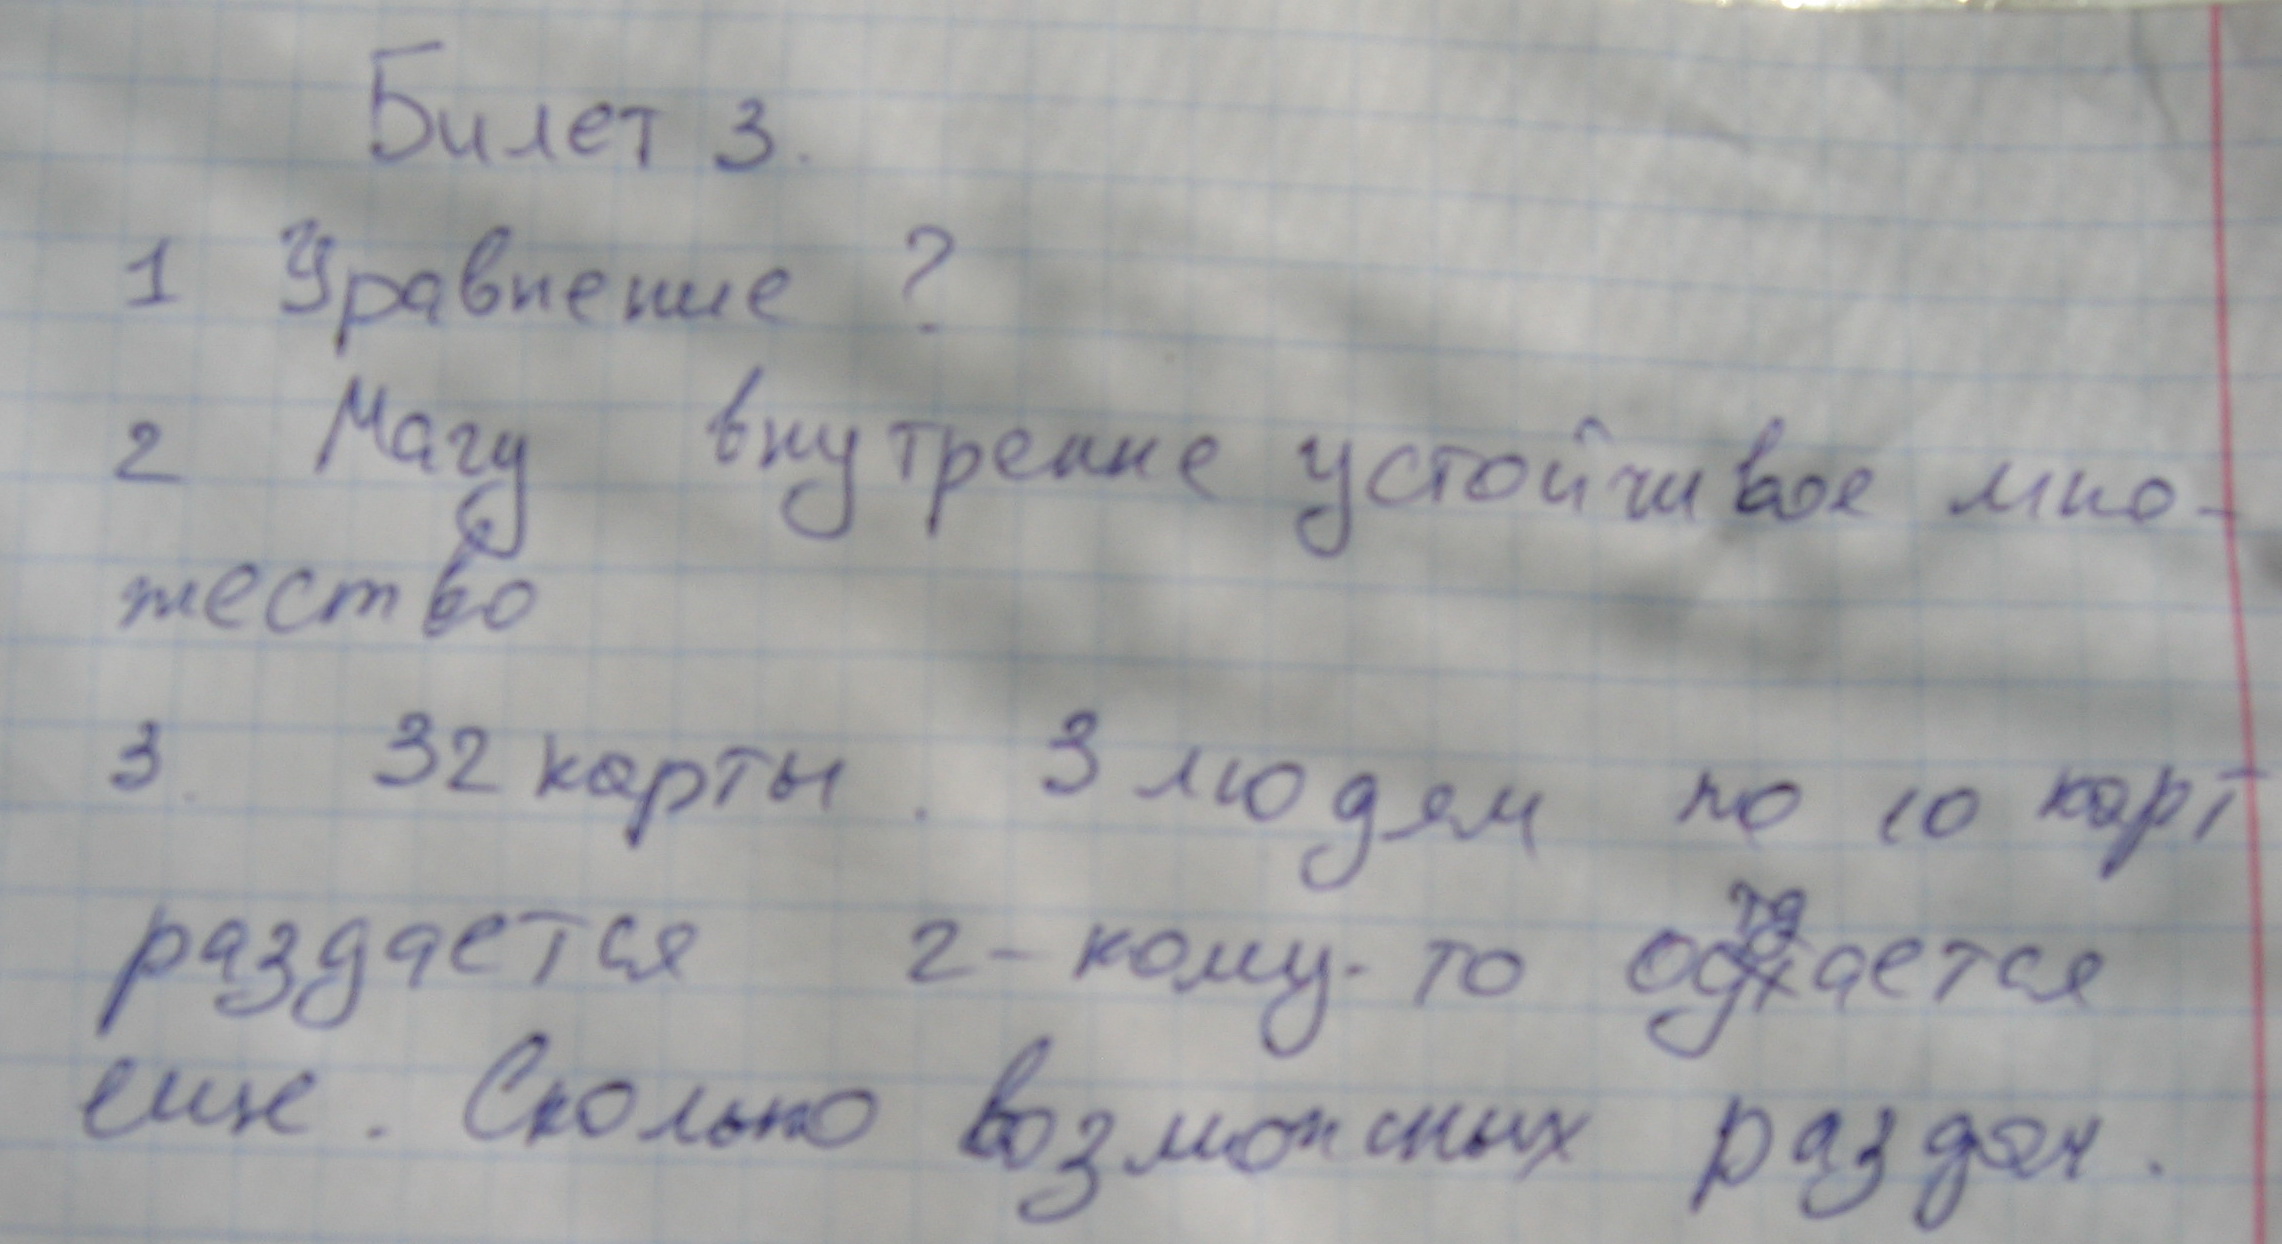 Билет 3.
1 Уравнение ?
2 Магу внутренне устойчивое мно-
жество
3. 32 карты. 3 людям по 10 карт
раздается 2-кому-то отдается
еще. Сколько возможных раздач.